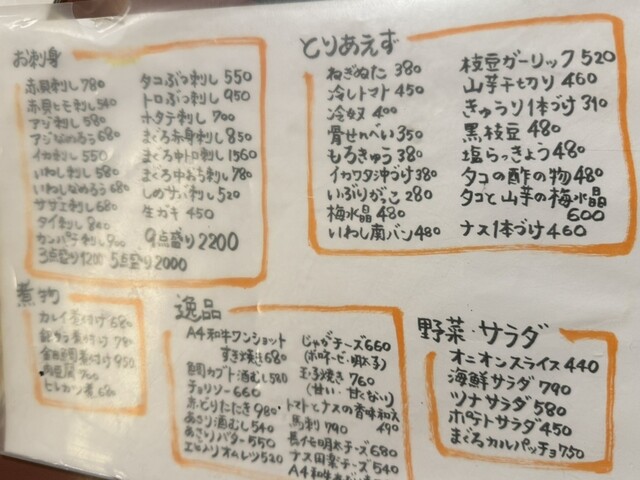 お刺身
赤貝刺し780
赤貝ヒモ刺し540
アジ刺し580
アジなめろう680
イカ刺し550
いわし刺し580
いわしなめろう680
サザエ刺し680
タイ刺し800
カンパチ刺し900
3点盛り1200 5点盛り2000
タコぶつ刺し550
トロぶつ刺し950
ホタテ刺し700
まぐろ赤身刺し850
まぐろ中トロ刺し1560
まぐろ中おち刺し780
しめサバ刺し520
生ガキ450
9点盛り2200
とりあえず
ねぎぬた380
冷しトマト450
冷奴400
骨せんべい350
もろきゅう380
イカワタ沖づけ380
いぶりがっこ280
梅水晶480
いわし南バン480
枝豆ガーリック520
山芋千切り460
きゅうり1本づけ390
黒枝豆480
塩らっきょう480
タコの酢の物480
タコと山芋の梅水晶
600
ナス1本づけ460
煮物
カレイ煮付け680
銀ダラ煮付け780
金目鯛煮付け950
逸品
A4和牛ワンショット
すき焼き680
鯛カブト酒むし580
チョリソー660
赤どりたたき980
あさり酒むし540
あさりバター550
オムレツ520
じゃがチーズ660
玉子焼き760
(甘い・甘くない)
トマトとナスの香味和え
490
馬刺790
長イモ明太チーズ680
ナス田楽チーズ540
A4和牛
野菜・サラダ
オニオンスライス440
海鮮サラダ790
ツナサラダ580
ポテトサラダ450
まぐろカルパッチョ750